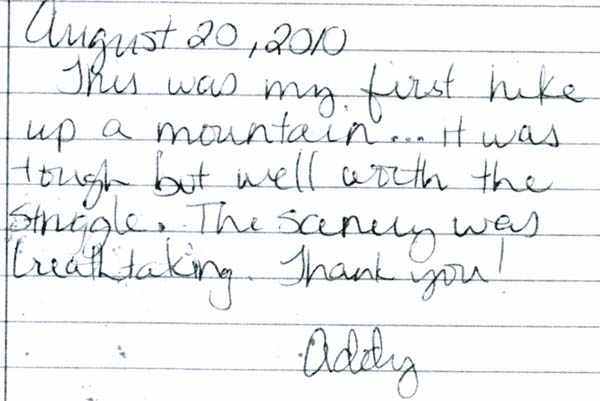 August 20, 2010
This was my first hike
up a mountain... it was
tough but well worth the
struggle. The scenery was
breathtaking. Thank you!
Addy